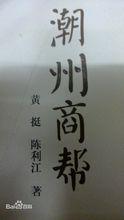 潮州商帮
黄挺 陈利江 著
Baidu百科